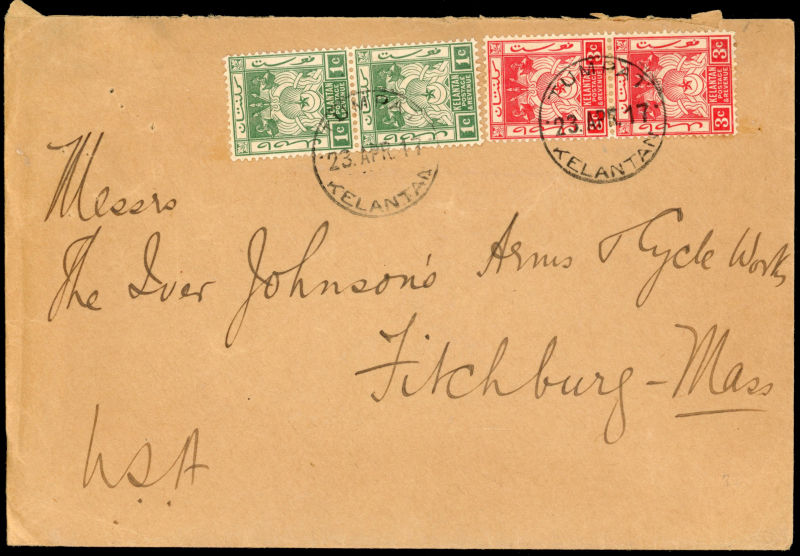 1c 1c 3c 3c
KELANTAN POSTAGE & REVENUE KELANTAN POSTAGE & REVENUE KELANTAN POSTAGE & REVENUE KELANTAN POSTAGE & REVENUE
كلنتن كلنتن
1c 1c 3c 3c
TUMPAT
23. APR. 17
KELANTAN
TUMPAT
23. APR. 17.
KELANTAN
Messrs
The Iver Johnson's Arms & Cycle Works
Fitchburg - Mass
USA